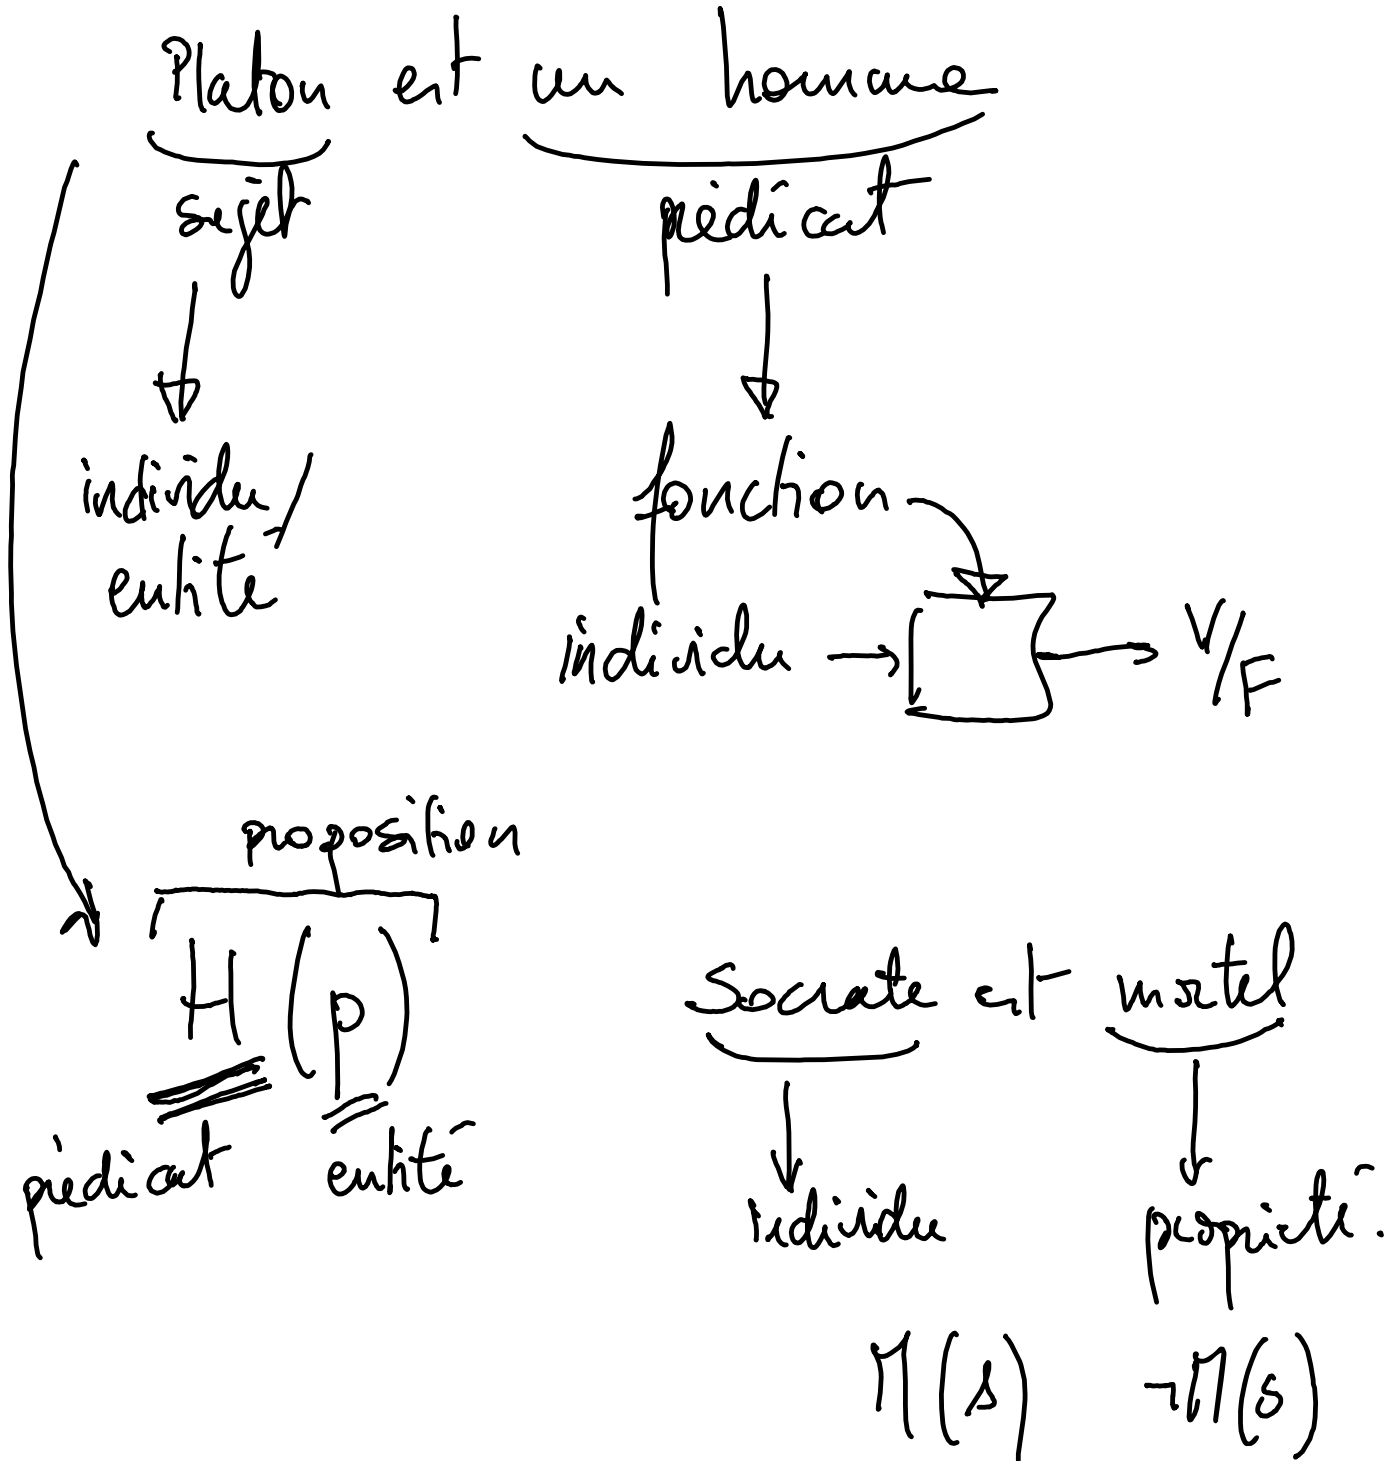 Platon est un homme
sujet prédicat
individu/
entité
fonction
individu → V/F
proposition
H(p)
prédicat entité
Socrate est mortel
individu propriété.
M(s) ¬M(s)